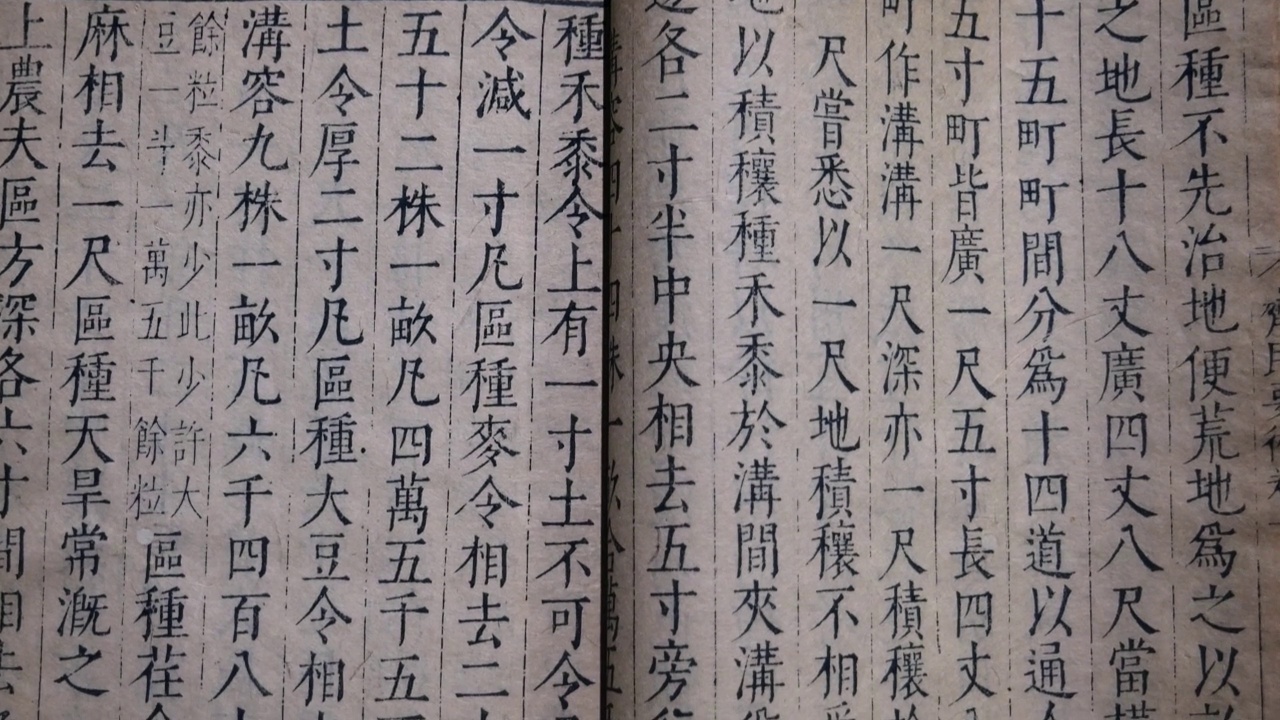 齊民要術卷
區種不先治地便荒地爲之以
之地長十八丈廣四丈八尺當橫
十五町町間分爲十四道以通人
五寸町皆廣一尺五寸長四丈八
町作溝溝一尺深亦一尺積穰於
尺嘗悉以一尺地積穰不相受
地以積穰種禾黍於溝間夾溝爲
各二寸半中央相去五寸旁行
種禾黍令上有一寸土不可令
令減一寸凡區種麥令相去二寸
五十二株一畝凡四萬五千五百
土令厚二寸凡區種大豆令相
溝容九株一畝凡六千四百八十
餘粒黍亦少此少許大
豆一斗一萬五千餘粒
區種荏令
麻相去一尺區種天旱常漑之
上農夫區方深各六寸間相去